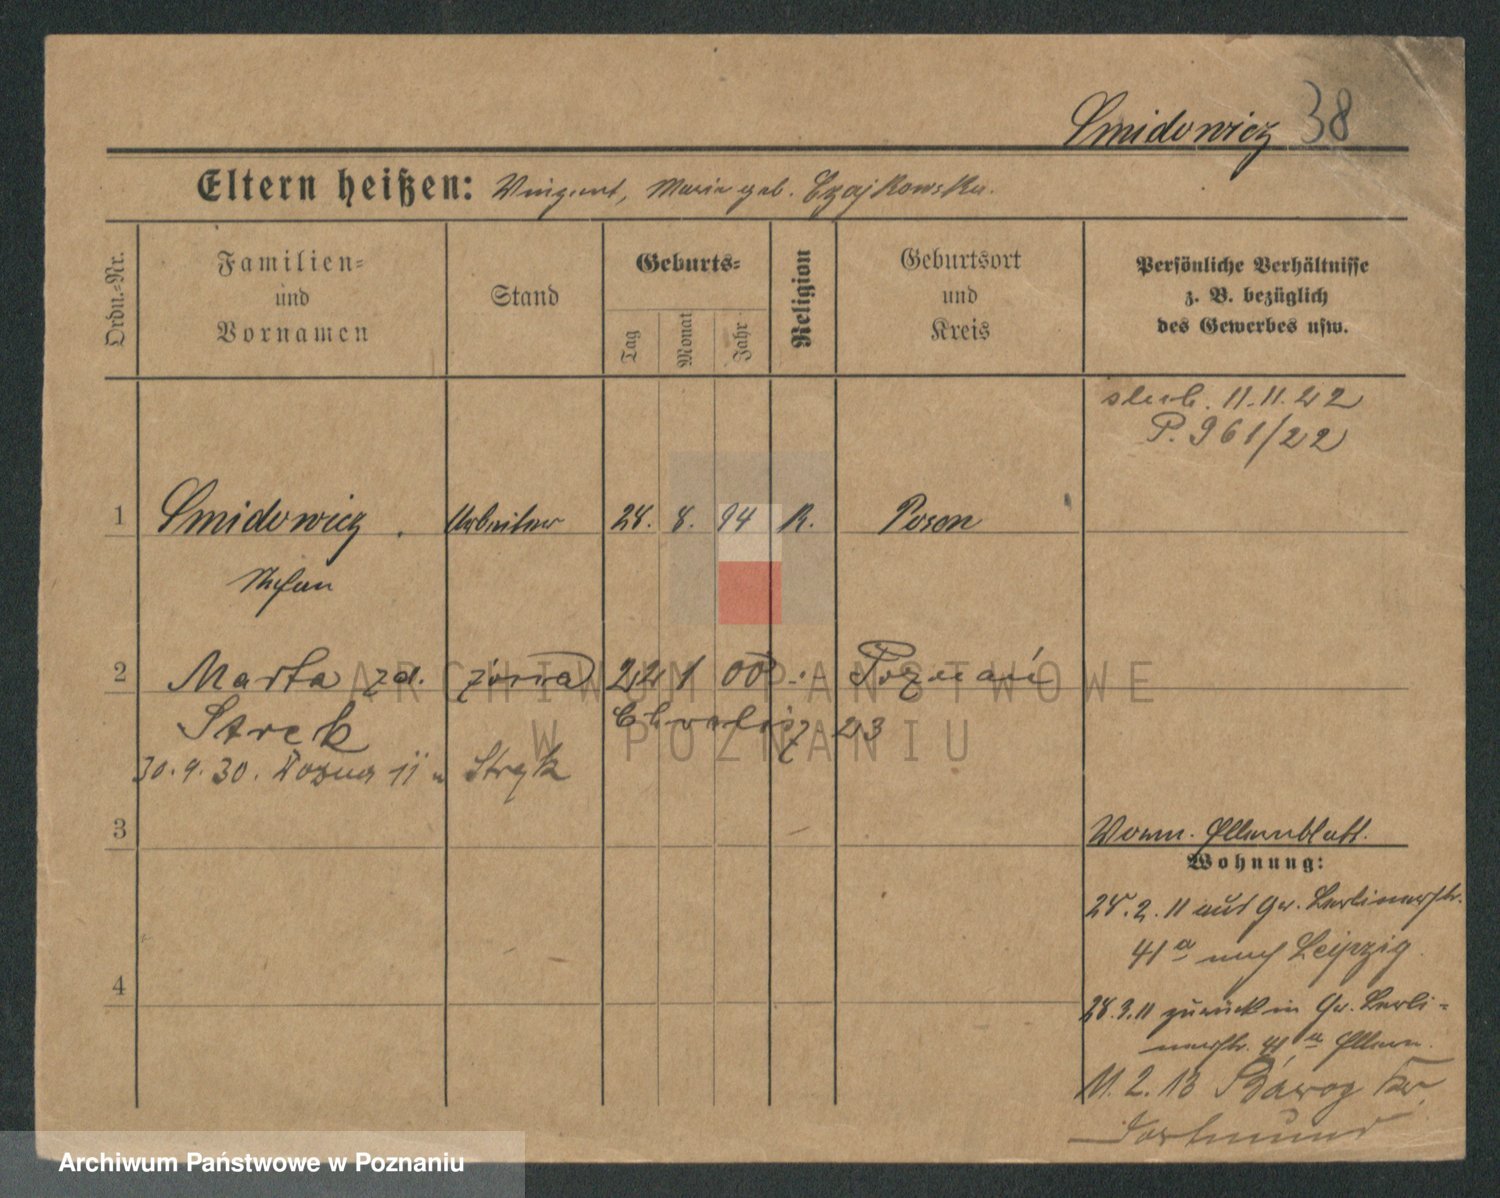 Smidowicz 38
Eltern heißen: Vinzent, Maria geb. Czajkowska.
Ordn.-Nr.
Familien-
und
Vornamen
Stand
Geburts-
Tag
Monat
Jahr
Religion
Geburtsort
und
Kreis
Persönliche Verhältnisse
z. B. bezüglich
des Gewerbes usw.
11.11.22
P. 961/22
1 Smidowicz Arbeiter 28. 8. 94 K. Posen
Stefan
2 Marta zd. żona 22 1 00 Poznań
Stręk
30.9.30. Stręk
3
Vorm. Elternblatt.
Wohnung:
28.2.11 aus Gr. Berlinerstr.
41a nach Leipzig
4
28.3.11 zurück in Gr. Berli-
nerstr. 41a Eltern.
11.2.13
Dortmund
ARCHIWUM PAŃSTWOWE
W POZNANIU
Archiwum Państwowe w Poznaniu